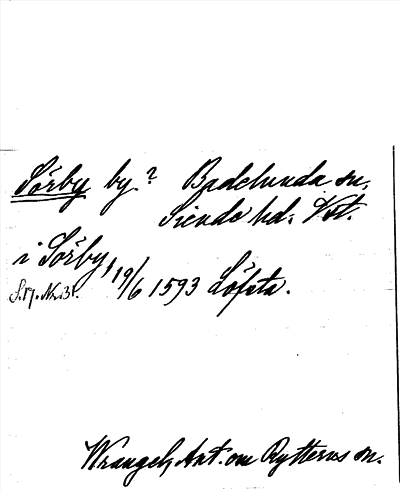 Sörby by? Badelunda sn,
Siende hd. Vst.
i Sörby, 19/6 1593 Löfsta.
S. 17. Nr. 31.
Wrangel, Ant. om Rytterns sn.